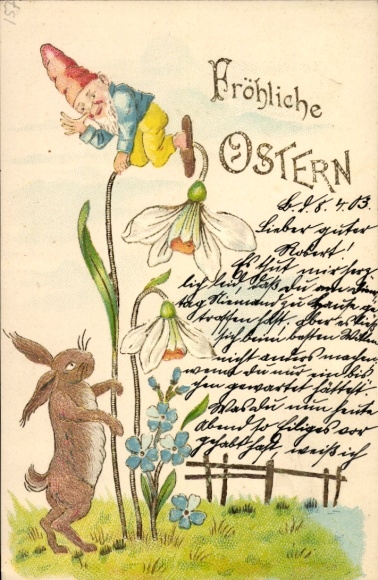 157
Fröhliche
OSTERN
B. d. 8. 4. 03.
Lieber guter
Robert!
Es thut mir herz-
lich leid, daß du am Diens-
tag Niemand zu Hause ge-
troffen hast, aber es ließ
sich beim besten Willen
nicht anders machen,
wenn du nur ein bis-
chen gewartet hättest!
Was du nun heute
Abend so eiliges vor
gehabt hast, weiß ich